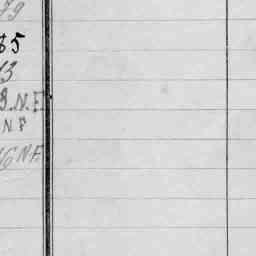 79
85
13
8. N. F.
N F
16 N F.